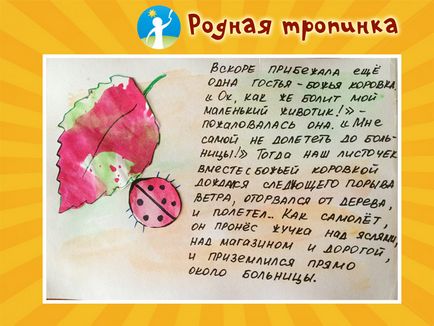 Родная тропинка
Вскоре прибежала ещё
одна гостья - божья коровка.
„Ох, как же болит мой
маленький животик!" -
пожаловалась она. „Мне
самой не долететь до боль-
ницы!" Тогда наш листочек
вместе с божьей коровкой
дождался следующего порыва
ветра, оторвался от дерева,
и полетел... Как самолёт,
он пронёс жучка над яслями,
над магазином и дорогой,
и приземлился прямо
около больницы.